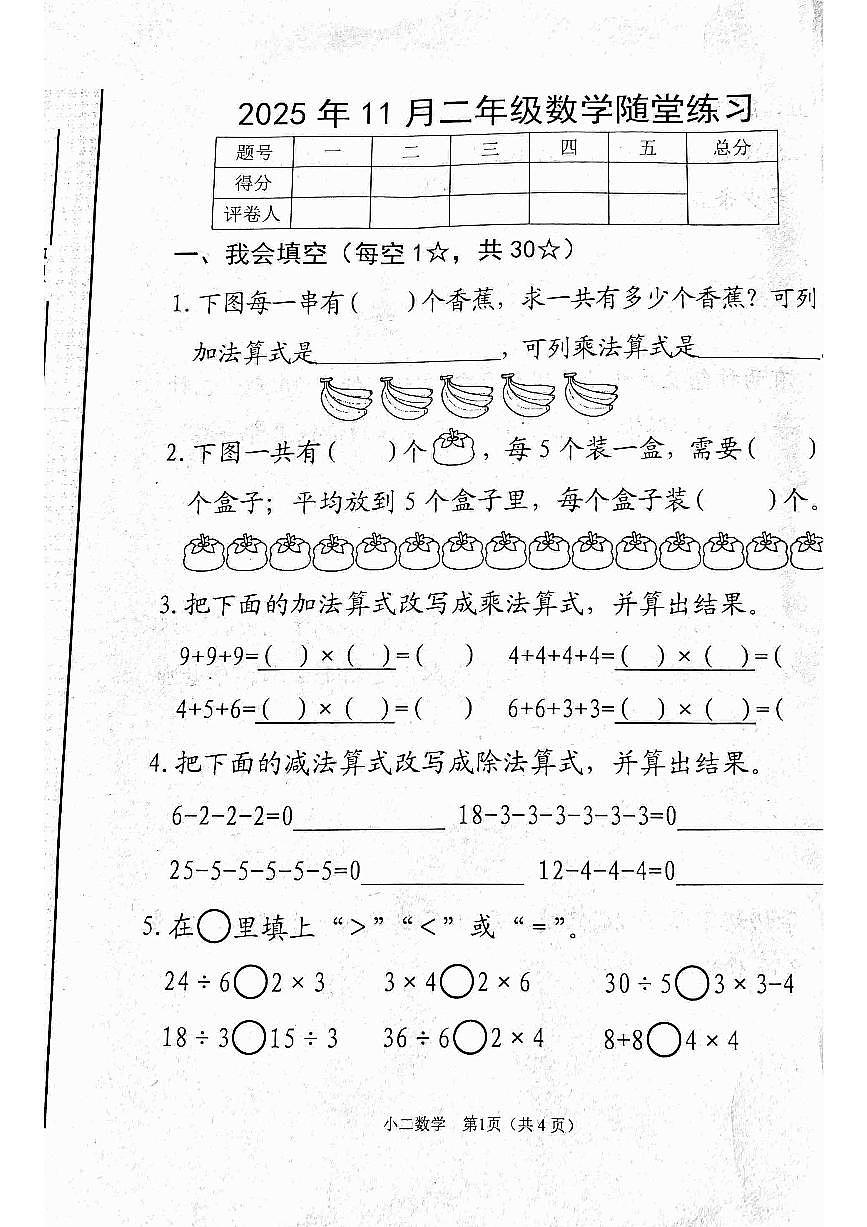 2025 年 11 月二年级数学随堂练习
题号 一 二 三 四 五 总分
得分
评卷人
一、我会填空（每空1☆，共30☆）
1. 下图每一串有(    )个香蕉，求一共有多少个香蕉？可列
加法算式是____________，可列乘法算式是________
2. 下图一共有(    )个，每5个装一盒，需要(    )
个盒子；平均放到5个盒子里，每个盒子装(    )个。
3. 把下面的加法算式改写成乘法算式，并算出结果。
9+9+9=(  )×(  )=(  ) 4+4+4+4=(  )×(  )=(
4+5+6=(  )×(  )=(  ) 6+6+3+3=(  )×(  )=(
4. 把下面的减法算式改写成除法算式，并算出结果。
6-2-2-2=0__________ 18-3-3-3-3-3-3=0__________
25-5-5-5-5-5=0__________ 12-4-4-4=0__________
5. 在○里填上“>”“<”或“=”。
24÷6○2×3 3×4○2×6 30÷5○3×3-4
18÷3○15÷3 36÷6○2×4 8+8○4×4
小二数学 第1页（共4页）